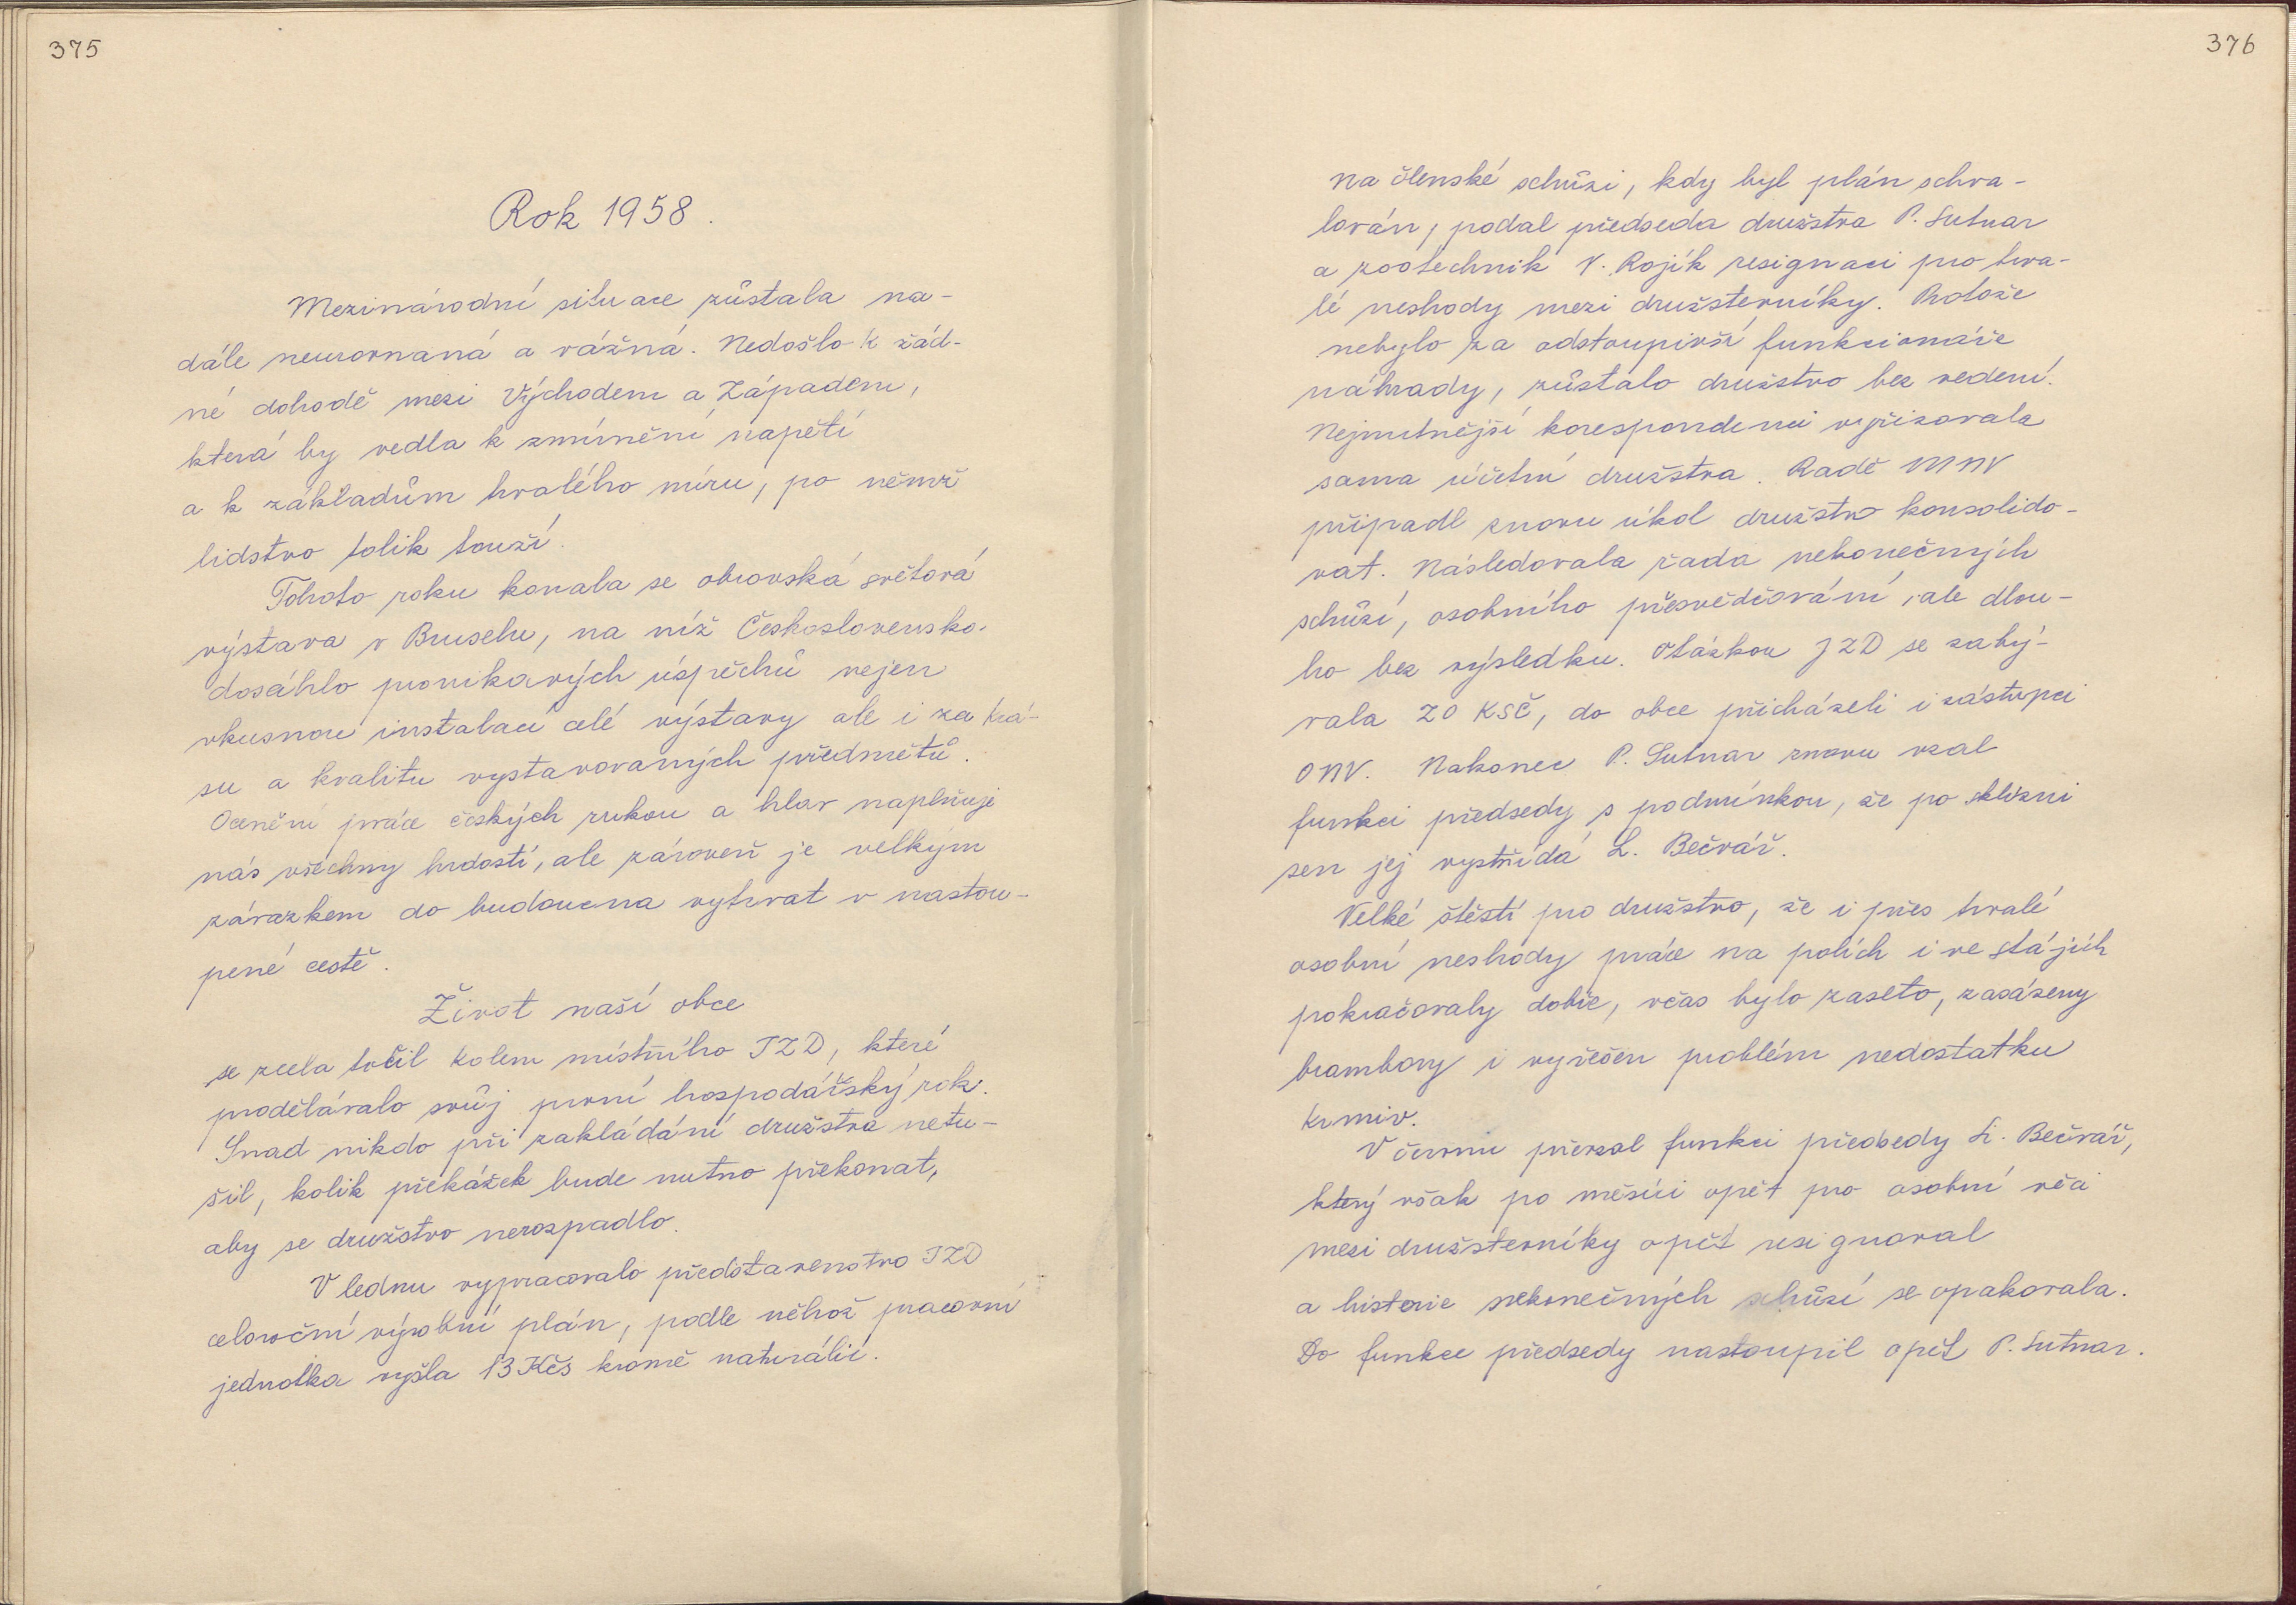 375
Rok 1958.
Mezinárodní situace zůstala na-
dále neurovnaná a vážná. Nedošlo k žád-
né dohodě mezi Východem a Západem,
která by vedla k zmírnění napětí
a k základům trvalého míru, po němž
lidstvo tolik touží.
Tohoto roku konala se obrovská světová
výstava v Bruselu, na níž Československo
dosáhlo pronikavých úspěchů nejen
vkusnou instalací celé výstavy ale i za krá-
su a kvalitu vystavovaných předmětů.
Ocenění práce českých rukou a hlav naplňuje
nás všechny hrdostí, ale zároveň je velkým
závazkem do budoucna vytrvat v nastou-
pené cestě.
Život naší obce
se zcela točil kolem místního JZD, které
prodělávalo svůj první hospodářský rok.
Snad nikdo při zakládání družstva netu-
šil, kolik překážek bude nutno překonat,
aby se družstvo nerozpadlo.
V lednu vypracovalo představenstvo JZD
celoroční výrobní plán, podle něhož pracovní
jednotka vyšla 13 Kčs kromě naturálií.
376
Na členské schůzi, kdy byl plán schva-
lován, podal předseda družstva P. Sutnar
a zootechnik V. Rojík resignaci pro trva-
lé neshody mezi družsterníky. Protože
nebylo za odstoupivší funkcionáře
náhrady, zůstalo družstvo bez vedení.
Nejnutnější korespondenci vyřizovala
sama účetní družstva. Radě MNV
připadl znovu úkol družstvo konsolido-
vat. Následovala řada nekonečných
schůzí, osobního přesvědčování, ale dlou-
ho bez výsledku. Otázkou JZD se zabý-
vala ZO KSČ, do obce přicházeli i zástupci
ONV. Nakonec P. Sutnar znovu vzal
funkci předsedy s podmínkou, že po sklizni
sen jej vystřídá L. Bečvář.
Velké štěstí pro družstvo, že i přes trvalé
osobní neshody práce na polích i ve stájích
pokračovaly dobře, včas bylo zaseto, zasázeny
brambory i vyřešen problém nedostatku
krmiv.
V červnu převzal funkci předsedy L. Bečvář,
který však po měsíci opět pro osobní věci
mezi družsterníky opět resignoval
a historie nekonečných schůzí se opakovala.
Do funkce předsedy nastoupil opět P. Sutnar.